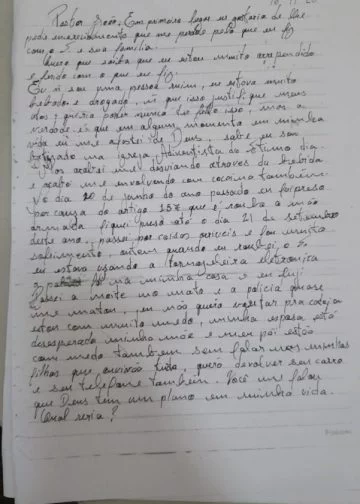 Pastor João, Em primeiro lugar eu gostaria de lhe
pedir encarecidamente que me perdoe pelo que eu fiz
com o S. e sua família.
Quero que saiba que eu estou muito arrependido
e tendo com o que eu fiz.
Eu ñ sou uma pessoa ruim, eu estava muito
bebado e drogado, ñ que isso justifique meus
atos, queria poder nunca ter feito isso, mas a
verdade é que em algum momento em minha
vida eu me afastei de Deus, sabe eu sou
batizado na igreja Adventista do Sétimo dia
acabei me desviando através da bebida
e acabei me envolvendo com cocaína também.
No dia 20 de junho do ano passado eu fui preso
por causa do artigo 157 que é roubo a mão
armada fiquei preso até o dia 21 de setembro
deste ano, passei por coisas horríveis e foi muito
sofrimento, ontem quando eu roubei, o S.
eu estava usando a tornozeleira eletronica
a na minha casa e eu fugi
Passei a noite no mato e a policia quase
me matou, eu não quero voltar pra cadeia
estou com muito medo, minha esposa está
desesperada minha mãe e meu pai estão
com medo também sem falar nas minhas
filhas que ouviram tudo, quero devolver seu carro
e seu telefone também. Você me falou
que Deus tem um plano em minha vida.
Qual seria?